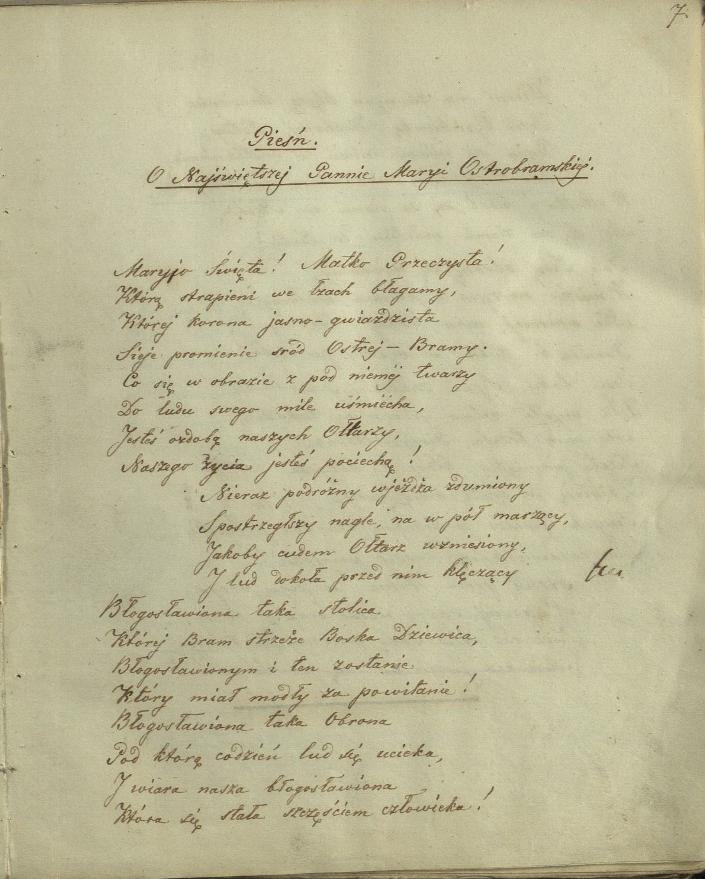 7.
Pieśń.
O Najświętszej Pannie Maryi Ostrobramskiéj.
Maryjo Święta! Matko Przeczysta!
Którą strapieni we łzach błagamy,
Której korona jasno-gwiaździsta
Sieje promienie sród Ostrej – Bramy.
Co się w obrazie z pod nieméj twarzy
Do ludu swego mile uśmiécha,
Jesteś ozdobą naszych Ołtarzy,
Naszego życia jesteś pociechą!
Nieraz podróżny wjéżdża zdumiony
Spostrzegłszy nagle, na w pół marzący,
Jakoby cudem Ołtarz wzniesiony,
I lud dokoła przed nim klęczący
Błogosławiona taka stolica
Której Bram strzeże Boska Dziewica,
Błogosławionym i ten zostanie
Który miał modły za powitanie!
Błogosławiona taka Obrona
Pod którą codzień lud się ucieka,
I wiara nasza błogosławiona
Która się stała szczęściem człowieka!